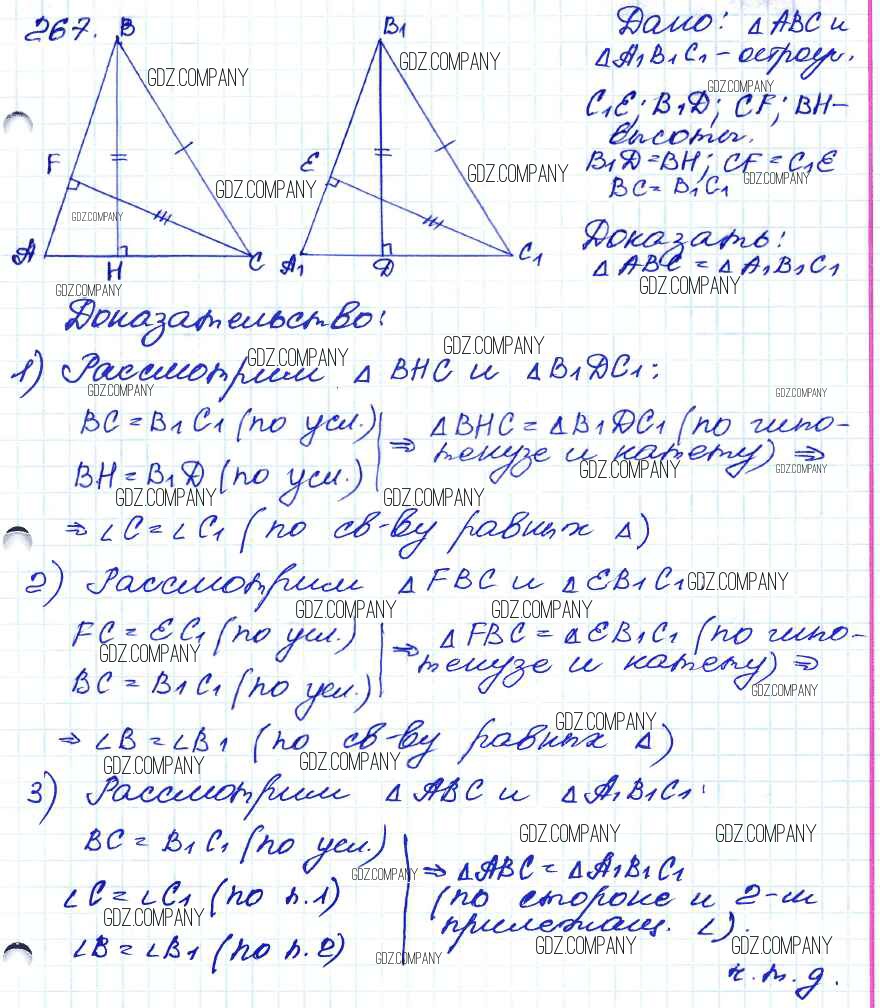 267.
B
F
A
H
C
B1
E
A1
D
C1
Дано: △ ABC и
△ A1B1C1 - остроуг.
C1E; B1D; CF; BH -
высоты.
B1D = BH; CF = C1E
BC = B1C1
Доказать:
△ ABC = △ A1B1C1
Доказательство:
1) Рассмотрим △ BHC и △B1DC1:
BC = B1C1 (по усл.)
BH = B1D (по усл.)
⇒ △BHC = △B1DC1 (по гипо-
тенузе и катету) ⇒
⇒ ∠C = ∠C1 (по св-ву равных △)
2) Рассмотрим △ FBC и △EB1C1
FC = EC1 (по усл.)
BC = B1C1 (по усл.)
⇒ △FBC = △EB1C1 (по гипо-
тенузе и катету) ⇒
⇒ ∠B = ∠B1 (по св-ву равных △)
3) Рассмотрим △ABC и △A1B1C1:
BC = B1C1 (по усл.)
∠C = ∠C1 (по п.1)
∠B = ∠B1 (по п.2)
⇒ △ABC = △A1B1C1
(по стороне и 2-м
прилежащ. ∠).
ч.т.д.
GDZ.COMPANY